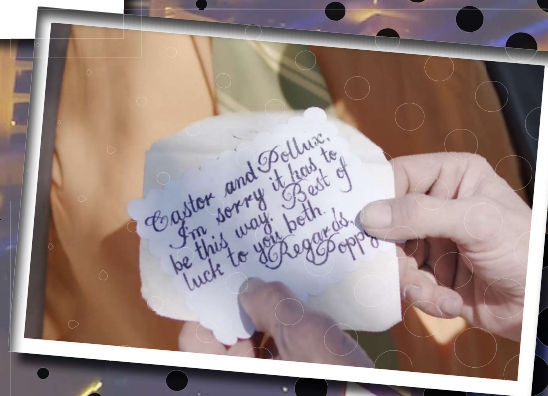 Castor and Pollux,
I'm sorry it has to
be this way. Best of
luck to you both.
Regards,
Poppy